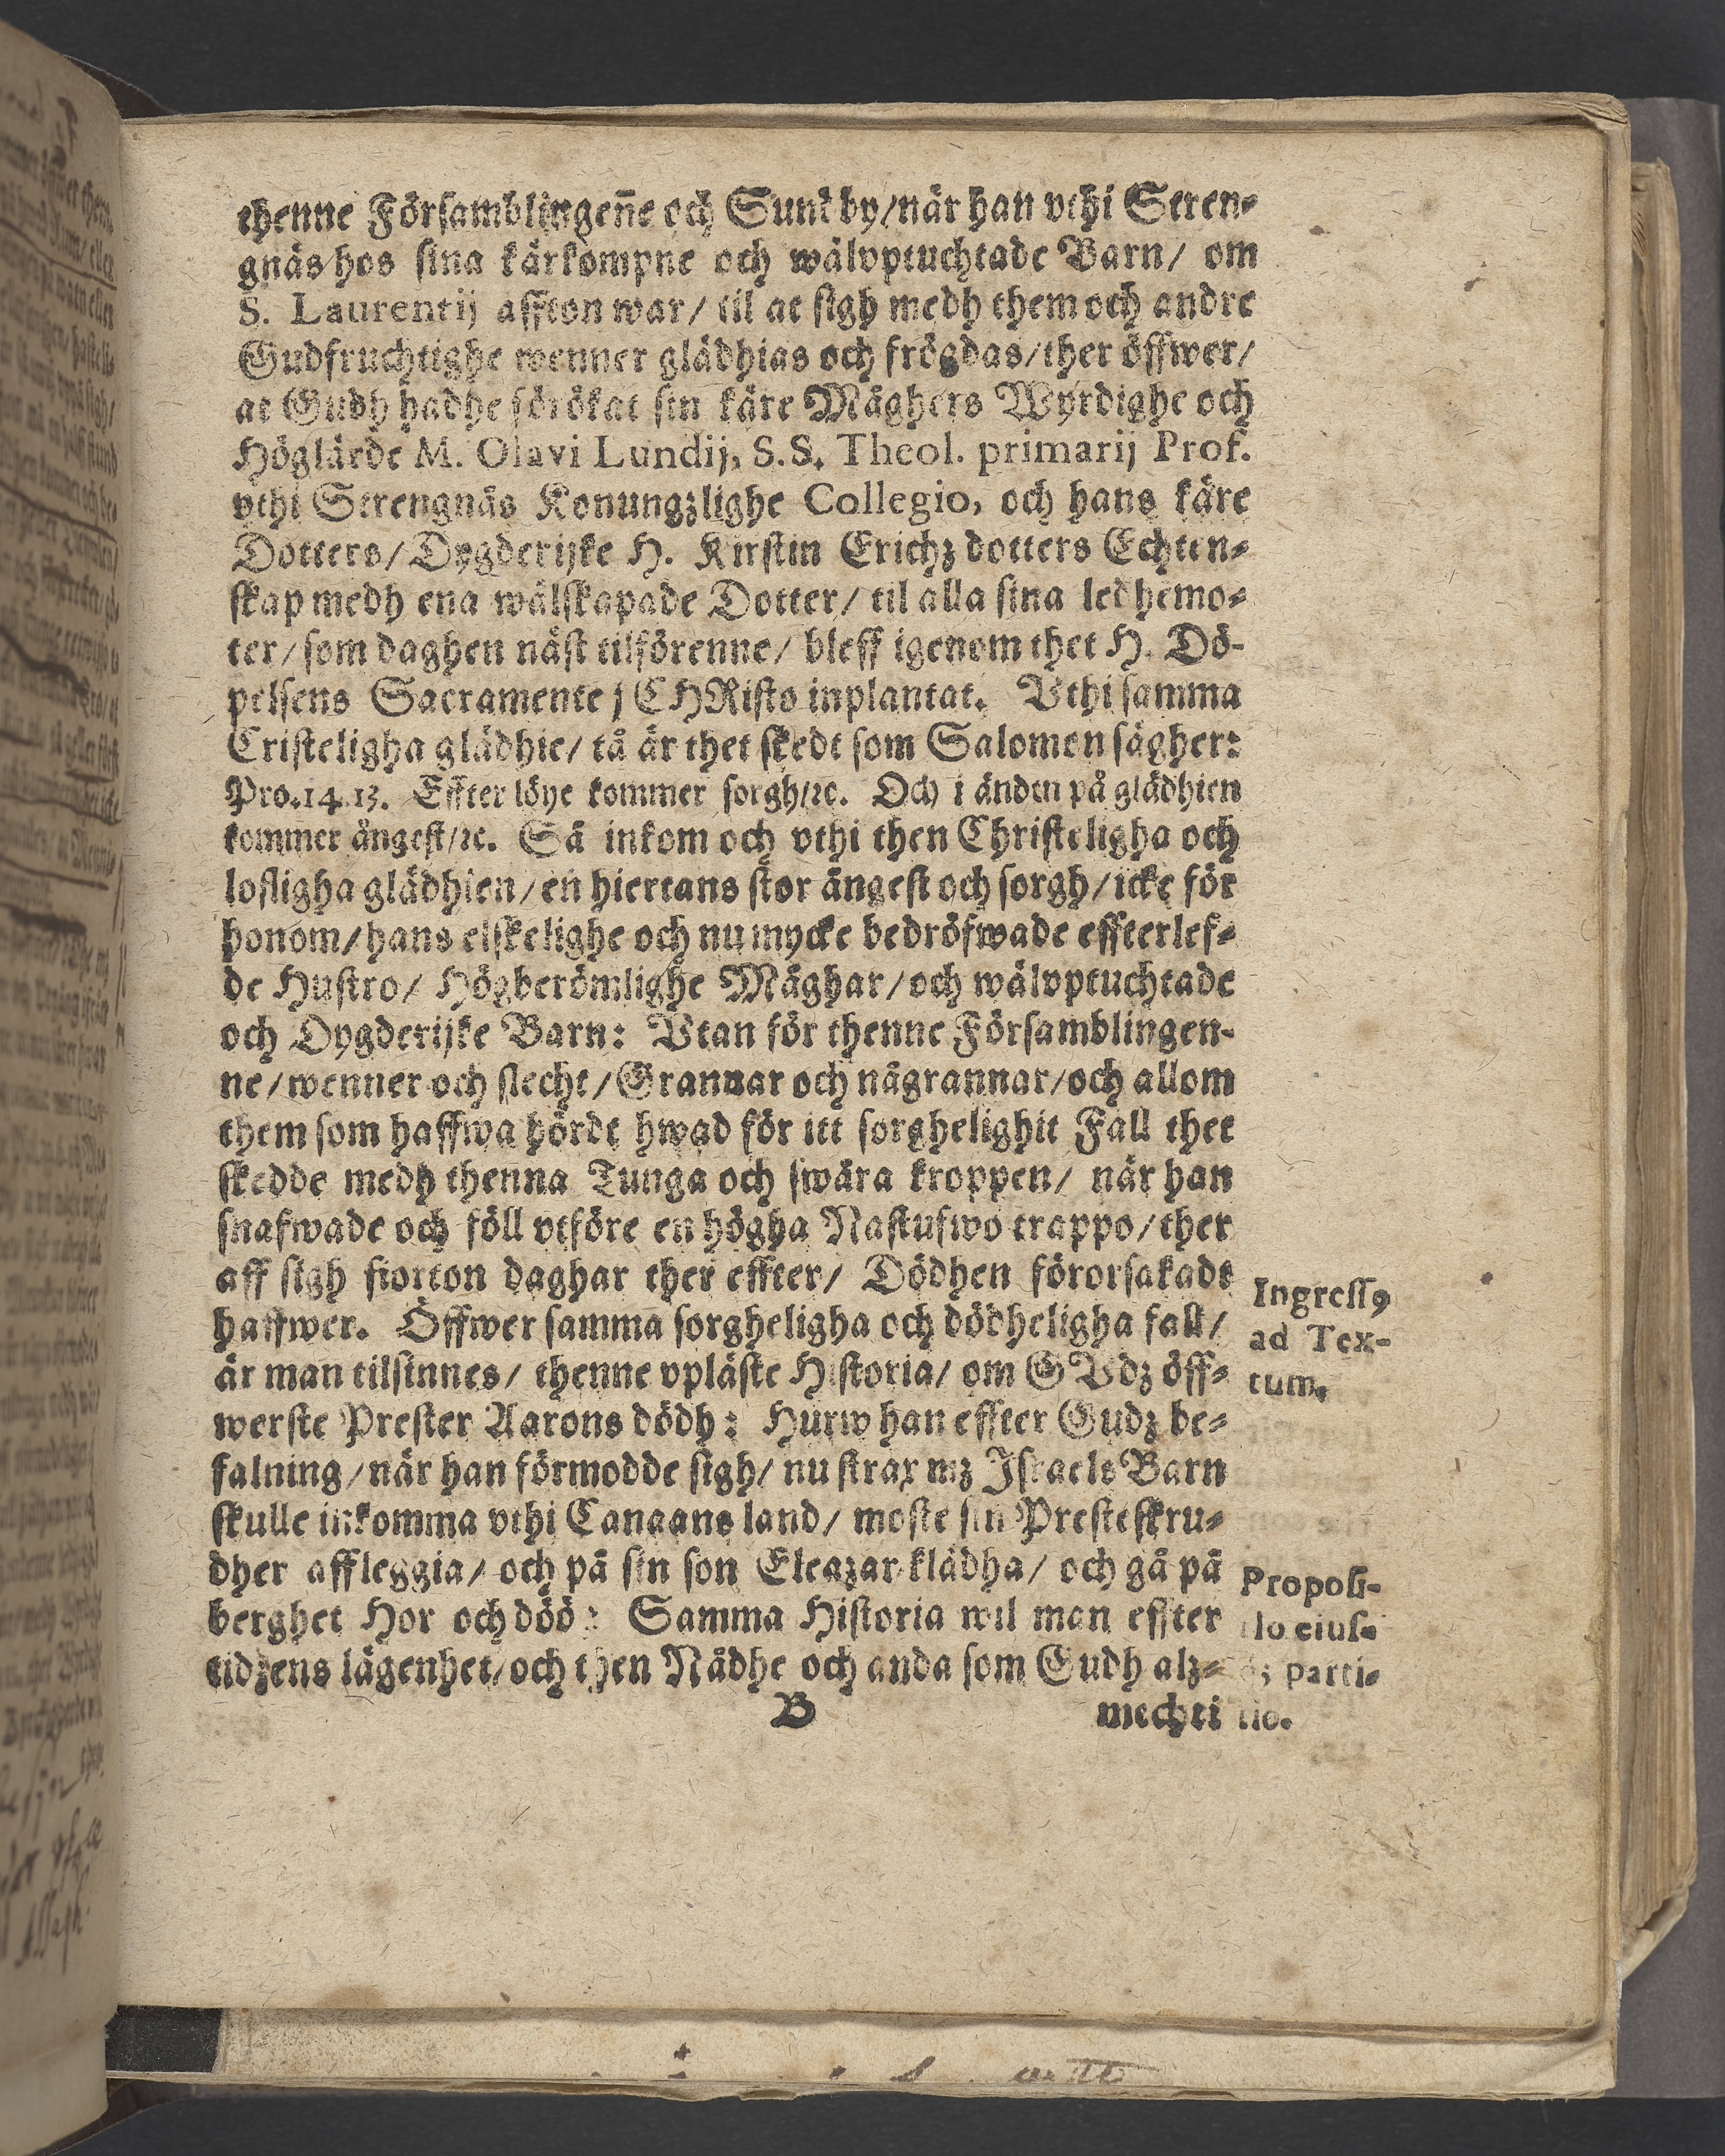 thenne Församblingen̄e och Sundby/när han vthi Stren⸗
gnäs hos sina kärkompne och wälvptuchtade Barn/ om
S. Laurentij affton war/ til at sigh medh them och andre
Gudfruchtighe wenner glädhias och frögdas/ther öffwer/
at Gudh hadhe förökat sin käre Mäghers Wyrdighe och
Höglärde M. Olavi Lundij, S.S. Theol. primarij Prof.
vthi Strengnäs Konungzlighe Collegio, och hans käre
Dotters/Dygderijke H. Kirstin Erichz dotters Echten⸗
skap medh ena wälskapade Dotter/ til alla sina ledhemo⸗
ter/som daghen näst tilförenne/ bleff igenom thet H. Dö-
pelsens Sacramente j CHRisto inplantat. Vthi samma
Cristeligha glädhie/ tå är thet skedt som Salomon sägher:
Pro.14.13. Effter löye kommer sorgh/ꝛc. Och i änden på glädhien
kommer ångest/ꝛc. Så inkom och vthi then Christeligha och
lofligha glädhien/en hiertans stor ångest och sorgh/icke för
honom/hans elskelighe och nu mycke bedröfwade effterlef⸗
de Hustro/ Högberömlighe Mäghar/och wälvptuchtade
och Dygderijke Barn: Vtan för thenne Församblingen-
ne/wenner och slecht/Grannar och någrannar/och allom
them som haffwa hördt hwad för itt sorghelighit Fall thet
skedde medh thenna Tunga och swåra kroppen/ när han
snafwade och föll vtföre en högha Nastufwo trappo/ther
aff sigh fiorton daghar ther effter/ Dödhen förorsakadt
haffwer. Öffwer samma sorgheligha och dödheligha fall/
är man tilsinnes/ thenne vpläste Historia/ om GVdz öff⸗
werste Prester Aarons dödh: Hurw han effter Gudz be⸗
falning/när han förmodde sigh/ nu strax mz Israels Barn
skulle inkomma vthi Canaans land/ moste sin Presteskru⸗
dher affleggia/ och på sin son Eleazar klädha/ och gå på
berghet Hor och döö: Samma Historia wil man effter
tidzens lägenhet/och then Nådhe och anda som Gudh alz⸗
B mechti
Ingressꝯ
ad Tex-
tum.
Proposi-
tio eius⸗
dz parti⸗
tio.